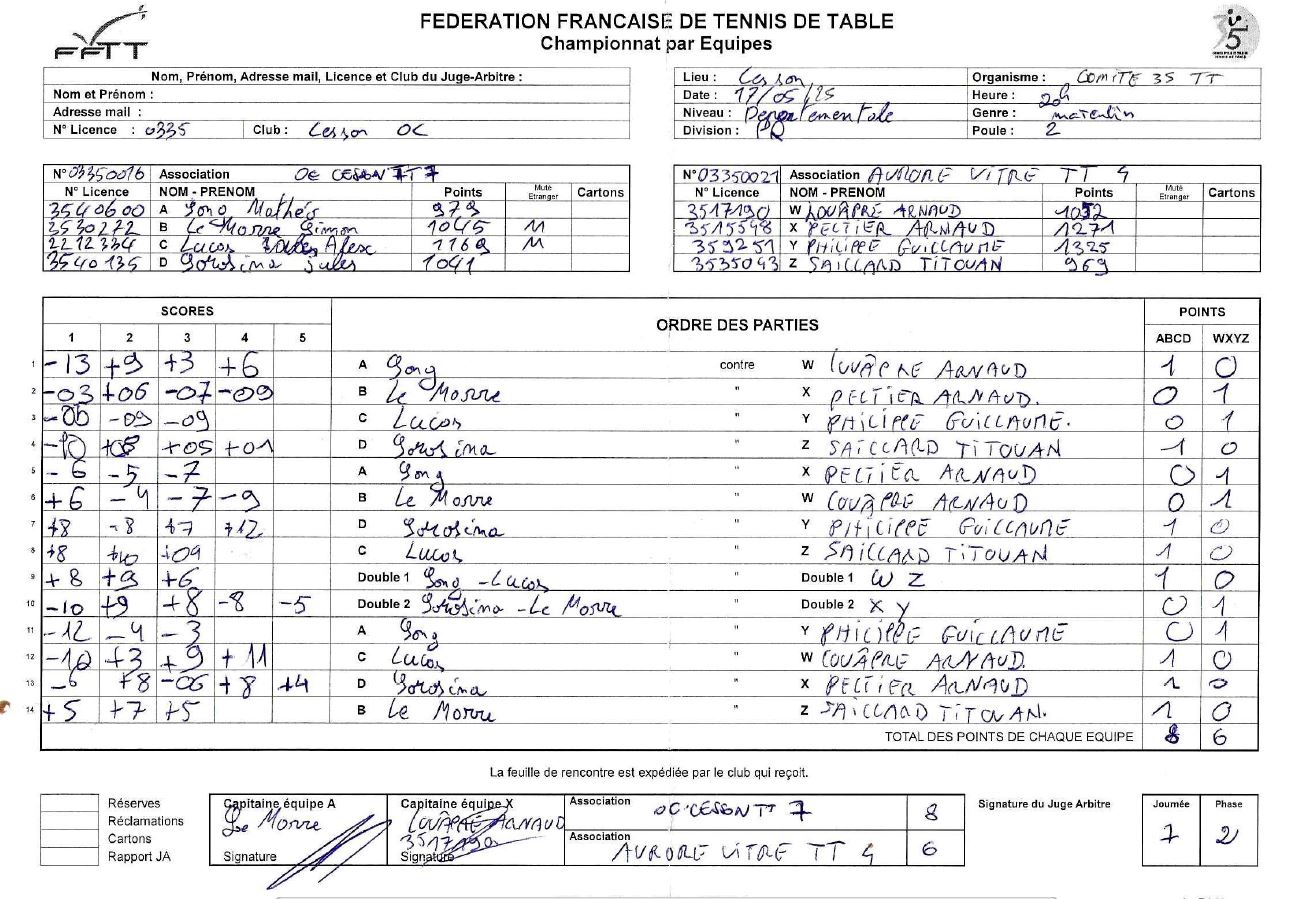 FEDERATION FRANCAISE DE TENNIS DE TABLE
FFTT
Championnat par Equipes
Nom, Prénom, Adresse mail, Licence et Club du Juge-Arbitre :
Nom et Prénom :
Adresse mail :
N° Licence : 0335 Club : Cesson OC
Lieu : Cesson Organisme : COMITE 35 TT
Date : 17/05/25 Heure : 20h
Niveau : Departementale Genre : masculin
Division : PR Poule : 2
N° 03350016 Association OC CESSON TT 7
N° Licence NOM - PRENOM Points Muté Etranger Cartons
3540600 A Song Mathéis 979
2530272 B Le Morre Simon 1045 M
2212334 C Lucas Alex 1169 M
3540135 D Sorosina Jules 1041
N° 03350021 Association AURORE VITRE TT 4
N° Licence NOM - PRENOM Points Muté Etranger Cartons
3517190 W LOUÂPRE ARNAUD 1052
3515598 X PELTIER ARNAUD 1271
359251 Y PHILIPPE GUILLAUME 1325
3535043 Z SAILLARD TITOUAN 969
SCORES ORDRE DES PARTIES POINTS
1 2 3 4 5 ABCD WXYZ
1 -13 +9 +3 +6 A Song contre W LOUÂPRE ARNAUD 1 0
2 -03 +06 -07 -09 B Le Morre " X PELTIER ARNAUD. 0 1
3 -06 -09 -09 C Lucas " Y PHILIPPE GUILLAUME. 0 1
4 -10 +08 +05 +01 D Sorosina " Z SAILLARD TITOUAN 1 0
5 -6 -5 -7 A Song " X PELTIER ARNAUD 0 1
6 +6 -4 -7 -9 B Le Morre " W LOUÂPRE ARNAUD 0 1
7 +8 -8 +7 +12 D Sorosina " Y PHILIPPE GUILLAUME 1 0
8 +8 +10 +09 C Lucas " Z SAILLARD TITOUAN 1 0
9 +8 +9 +6 Double 1 Song - Lucas " Double 1 W Z 1 0
10 -10 +9 +8 -8 -5 Double 2 Sorosina - Le Morre " Double 2 X Y 0 1
11 -12 -4 -3 A Song " Y PHILIPPE GUILLAUME 0 1
12 -10 +3 +9 +11 C Lucas " W LOUÂPRE ARNAUD. 1 0
13 -6 +8 -06 +8 +4 D Sorosina " X PELTIER ARNAUD 1 0
14 +5 +7 +5 B Le Morre " Z SAILLARD TITOUAN. 1 0
TOTAL DES POINTS DE CHAQUE EQUIPE 8 6
La feuille de rencontre est expédiée par le club qui reçoit.
Réserves
Réclamations
Cartons
Rapport JA
Capitaine équipe A
Le Morre
Signature
Capitaine équipe X
LOUÂPRE ARNAUD
3517190
Signature
Association OC CESSON TT 7 8
Association AURORE VITRE TT 4 6
Signature du Juge Arbitre
Journée Phase
7 2